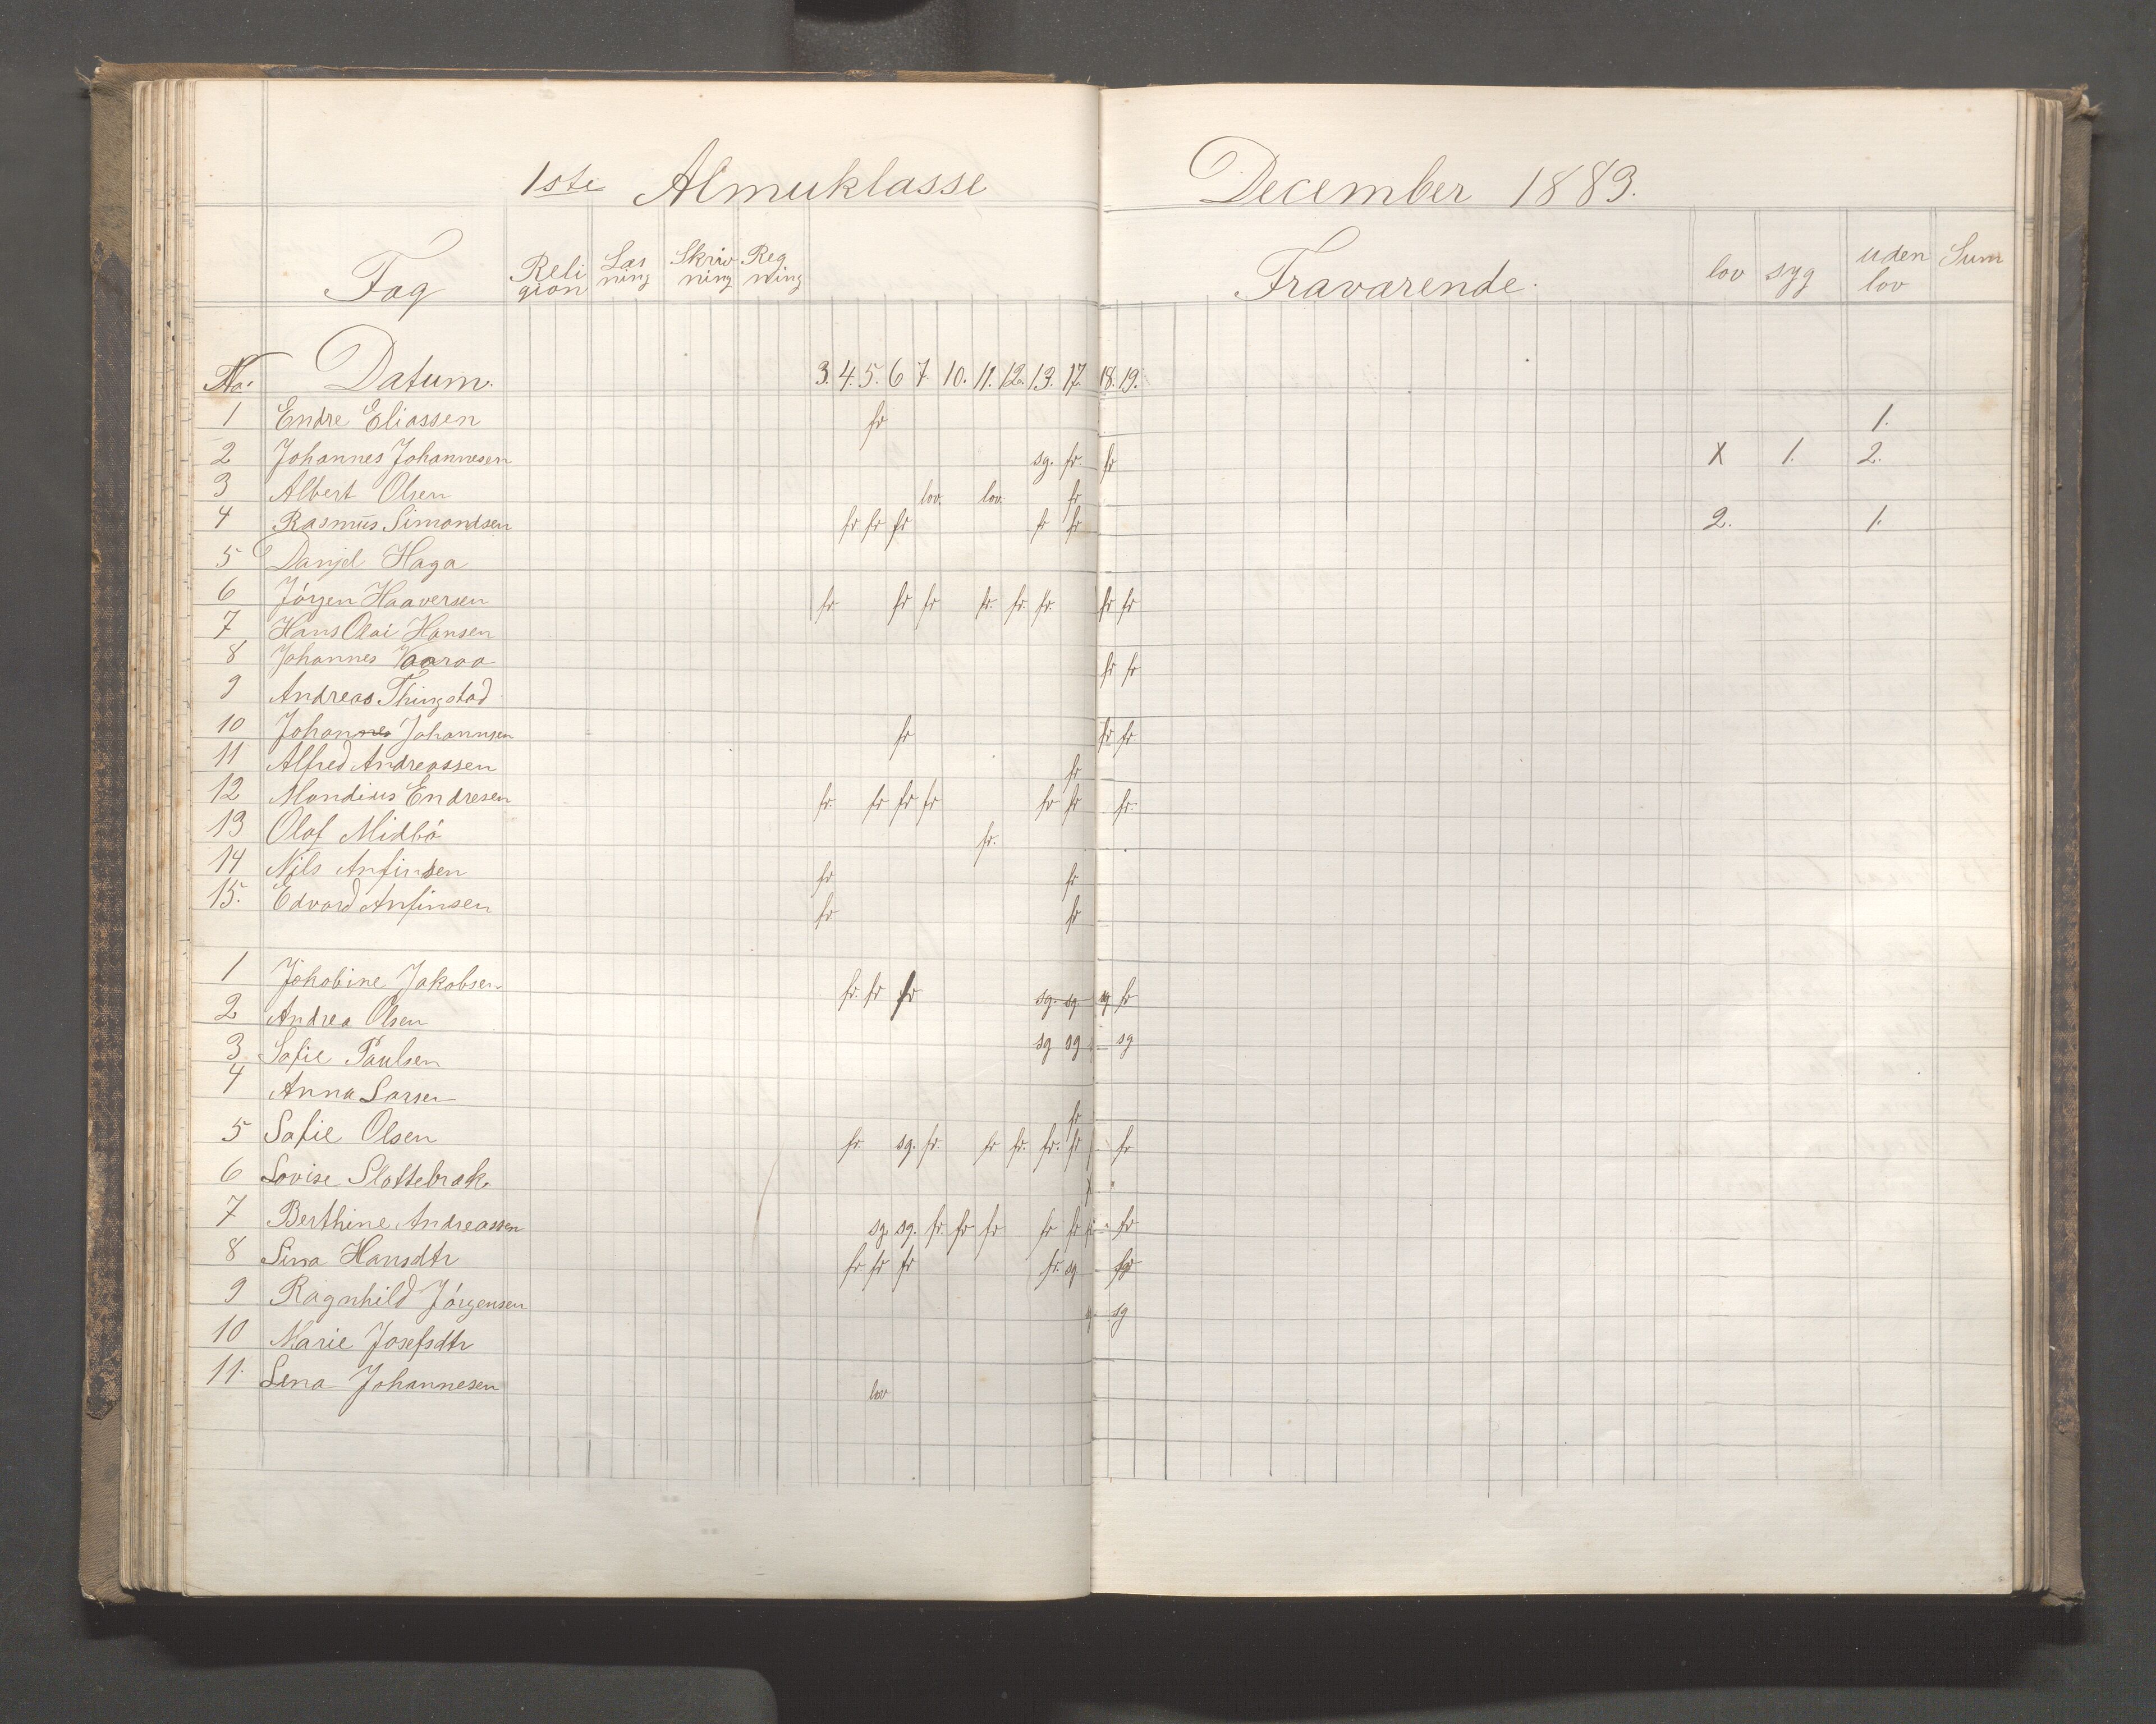 1ste Almuklasse December 1883.
Fag Reli gion Læs ning Skriv ning Reg ning Fraværende. lov syg uden lov Sum
No. Datum. 3. 4. 5. 6 7. 10. 11. 12. 13. 17. 18. 19.
1 Endre Eliassen fr 1.
2 Johannes Johannesen sg. fr. fr X 1. 2.
3 Albert Olsen lov. lov. fr
4 Rasmus Simondsen fr. fr fr fr fr 2. 1.
5 Danjel Haga
6 Jörgen Haaversen fr fr fr fr. fr. fr. fr fr
7 Hans Olai Hansen
8 Johannes Vaaraa fr fr
9 Andreas Thingstad
10 Johannes Johannsen fr fr fr.
11 Alfred Andreassen fr
12 Mandius Endresen fr. fr fr fr fr fr fr.
13 Olaf Midbö fr.
14 Nils Anfindsen fr fr
15. Edvard Anfinsen fr fr
1 Jakobine Jakobsen fr. fr fr sg. sg. sg fr
2 Andrea Olsen
3 Sofie Paulsen sg sg sg
4 Anna Larsen fr
5 Sofie Olsen fr. sg. fr. fr fr. fr. fr fr
6 Lovise Slottebrak.
7 Berthine Andreassen sg. sg. fr. fr fr fr fr fr
8 Sina Hansdtr fr fr fr fr. sg
9 Ragnhild Jörgensen sg
10 Marie Josefsdtr
11. Lena Johannesen lov